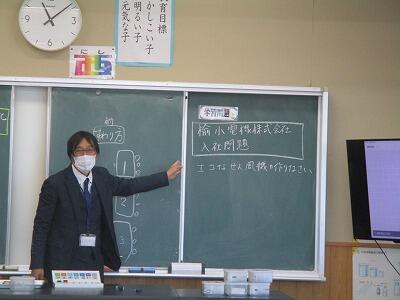 教育目標
かしこい子
明るい子
元気な子
にし
西
学習問題
榆小電機株式会社
入社問題
エコなせん風機を作りなさい
1
2
3